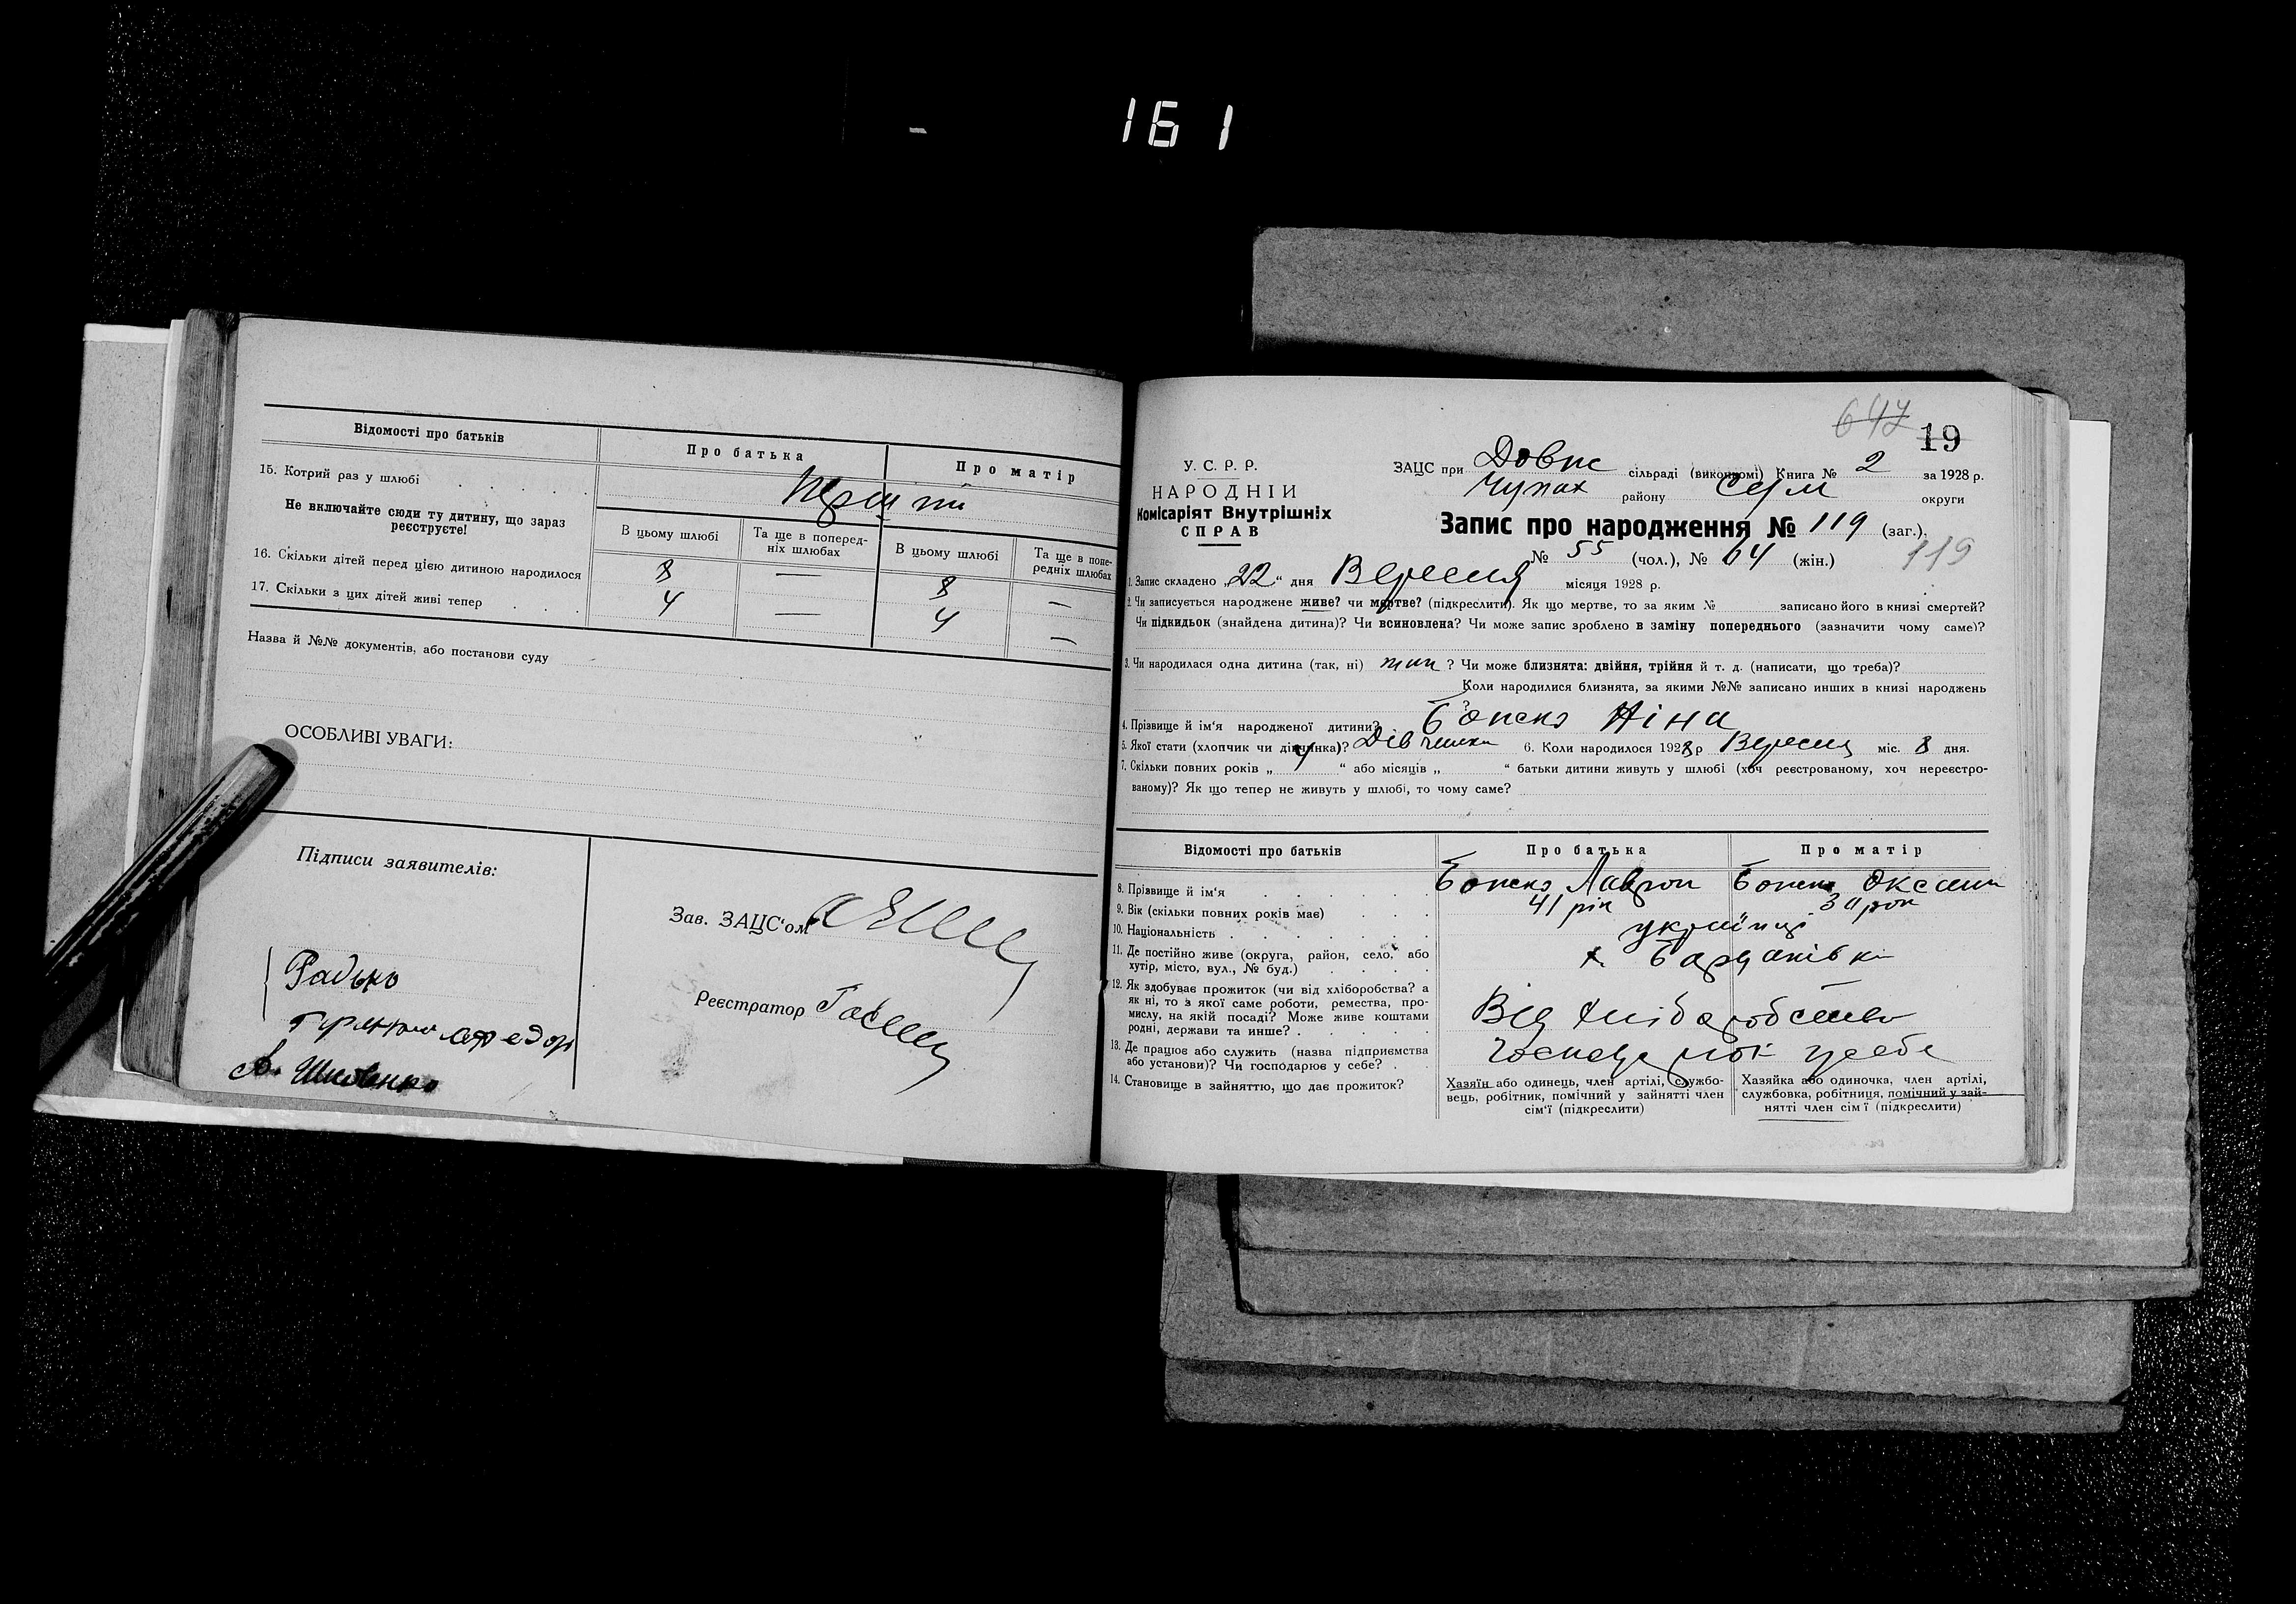 161
Відомості про батьків
Про батька
Про матір
15. Котрий раз у шлюбі
Не включайте сюди ту дитину, що зараз
реєструєте!
В цьому шлюбі
Та ще в поперед-
ніх шлюбах
В цьому шлюбі
Та ще в попе-
редніх шлюбах
16. Скільки дітей перед цією дитиною народилося 8 — 8 —
17. Скільки з цих дітей живі тепер 4 — 4 —
Назва й №№ документів, або постанови суду
ОСОБЛИВІ УВАГИ:
Підписи заявителів:
Зав. ЗАЦС'ом
Радько
Реєстратор
647 19
У. С. Р. Р.
НАРОДНІЙ
Комісаріят Внутрішніх
СПРАВ
ЗАЦС при Довж сільраді (виконкомі) Книга № 2 за 1928 р.
Чупах району Сум округи
Запис про народження № 119 (заг.).
№ 55 (чол.), № 64 (жін.) 119
1. Запис складено „22" дня Вересня місяця 1928 р.
2. Чи записується народжене живе? чи мертве? (підкреслити). Як що мертве, то за яким № записано його в книзі смертей?
Чи підкидьок (знайдена дитина)? Чи всиновлена? Чи може запис зроблено в заміну попереднього (зазначити чому саме)?
3. Чи народилася одна дитина (так, ні) так ? Чи може близнята: двійня, трійня й т. д. (написати, що треба)?
Коли народилися близнята, за якими №№ записано инших в книзі народжень
?
4. Прізвище й ім'я народженої дитини? Ніна
5. Якої статі (хлопчик чи дівчинка)? Дівчинка 6. Коли народилося 1928 р Вересня міс. 8 дня.
7. Скільки повних років „ 4 " або місяців „ " батьки дитини живуть у шлюбі (хоч реєстрованому, хоч нереєстро-
ваному)? Як що тепер не живуть у шлюбі, то чому саме?
Відомості про батьків
Про батька
Про матір
8. Прізвище й ім'я Оксана
9. Вік (скільки повних років має) 41 рік
10. Національність українці
11. Де постійно живе (округа, район, село, або
хутір, місто, вул., № буд.)
12. Як здобуває прожиток (чи від хліборобства? а
як ні, то з якої саме роботи, ремества, про-
мислу, на якій посаді? Може живе коштами
родні, держави та инше?
Від хліборобства
13. Де працює або служить (назва підприємства
або установи)? Чи господарює у себе?
у себе
14. Становище в зайняттю, що дає прожиток?
Хазяїн або одинець, член артілі, службо-
вець, робітник, помічний у зайнятті член
сім'ї (підкреслити)
Хазяйка або одиночка, член артілі,
службовка, робітниця, помічний у зай-
нятті член сім'ї (підкреслити)